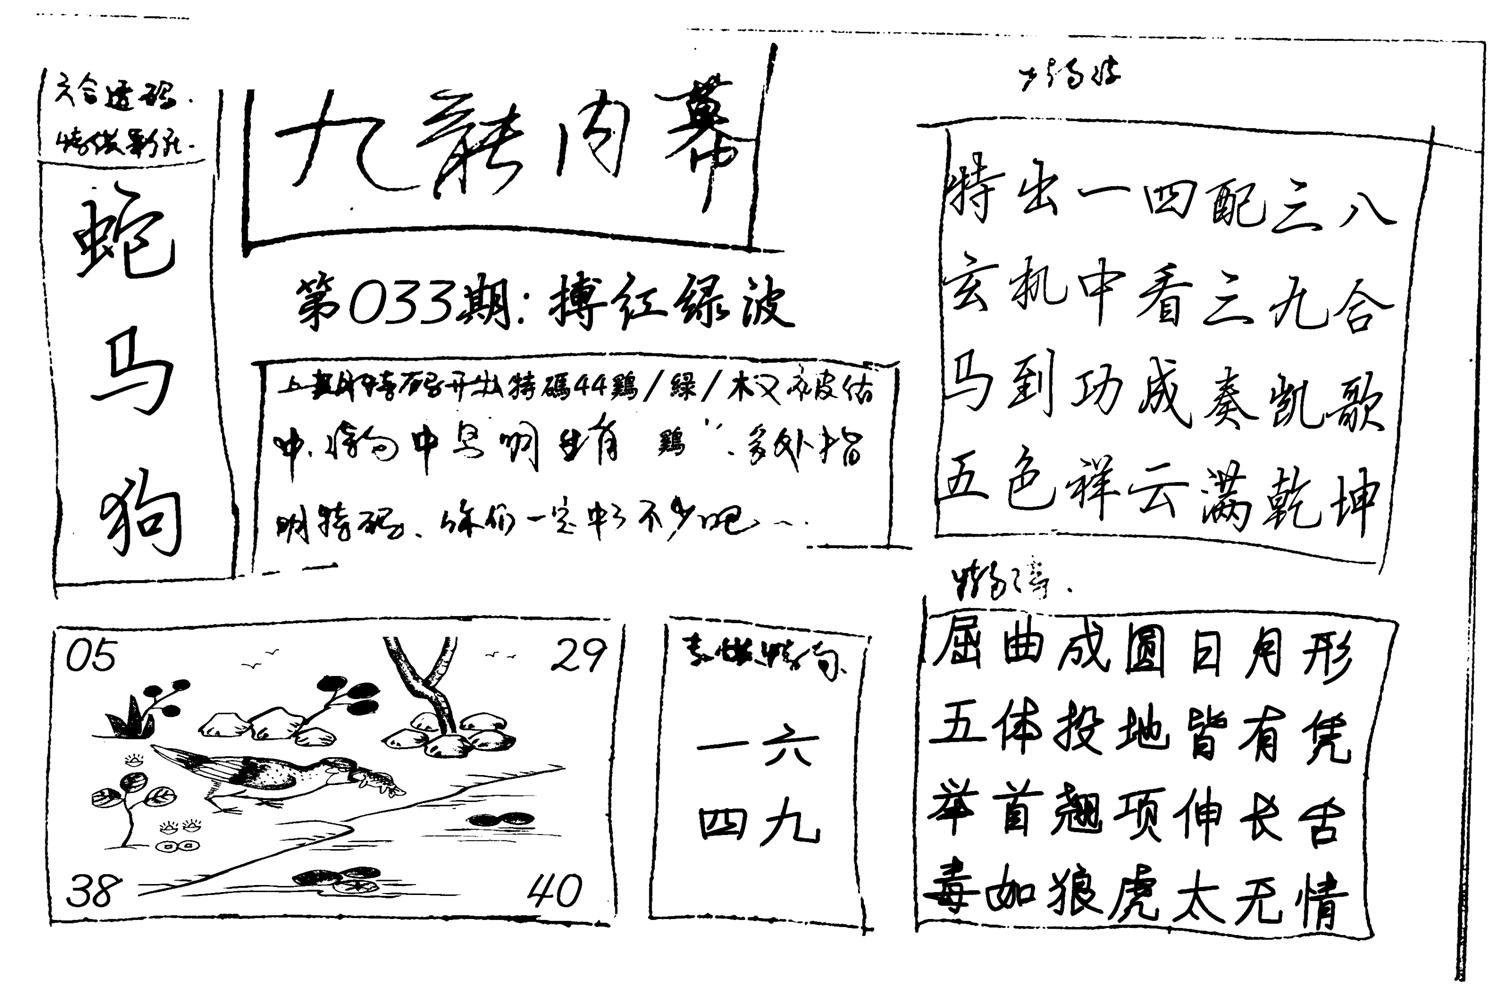 六合透码.
九龍内幕
蛇
马
狗
第033期:搏红绿波
上期特码开出特碼44鷄/绿/木又被估
中.特句中早明生肖鷄".多外指
明特码、你们一定中了不少吧~.
特出一四配三八
玄机中看三九合
马到功成奏凯歌
五色祥云满乾坤
05 29
38 40
一六
四九
屈曲成圆日月形
五体投地皆有凭
举首翘项伸长舌
毒如狼虎太无情